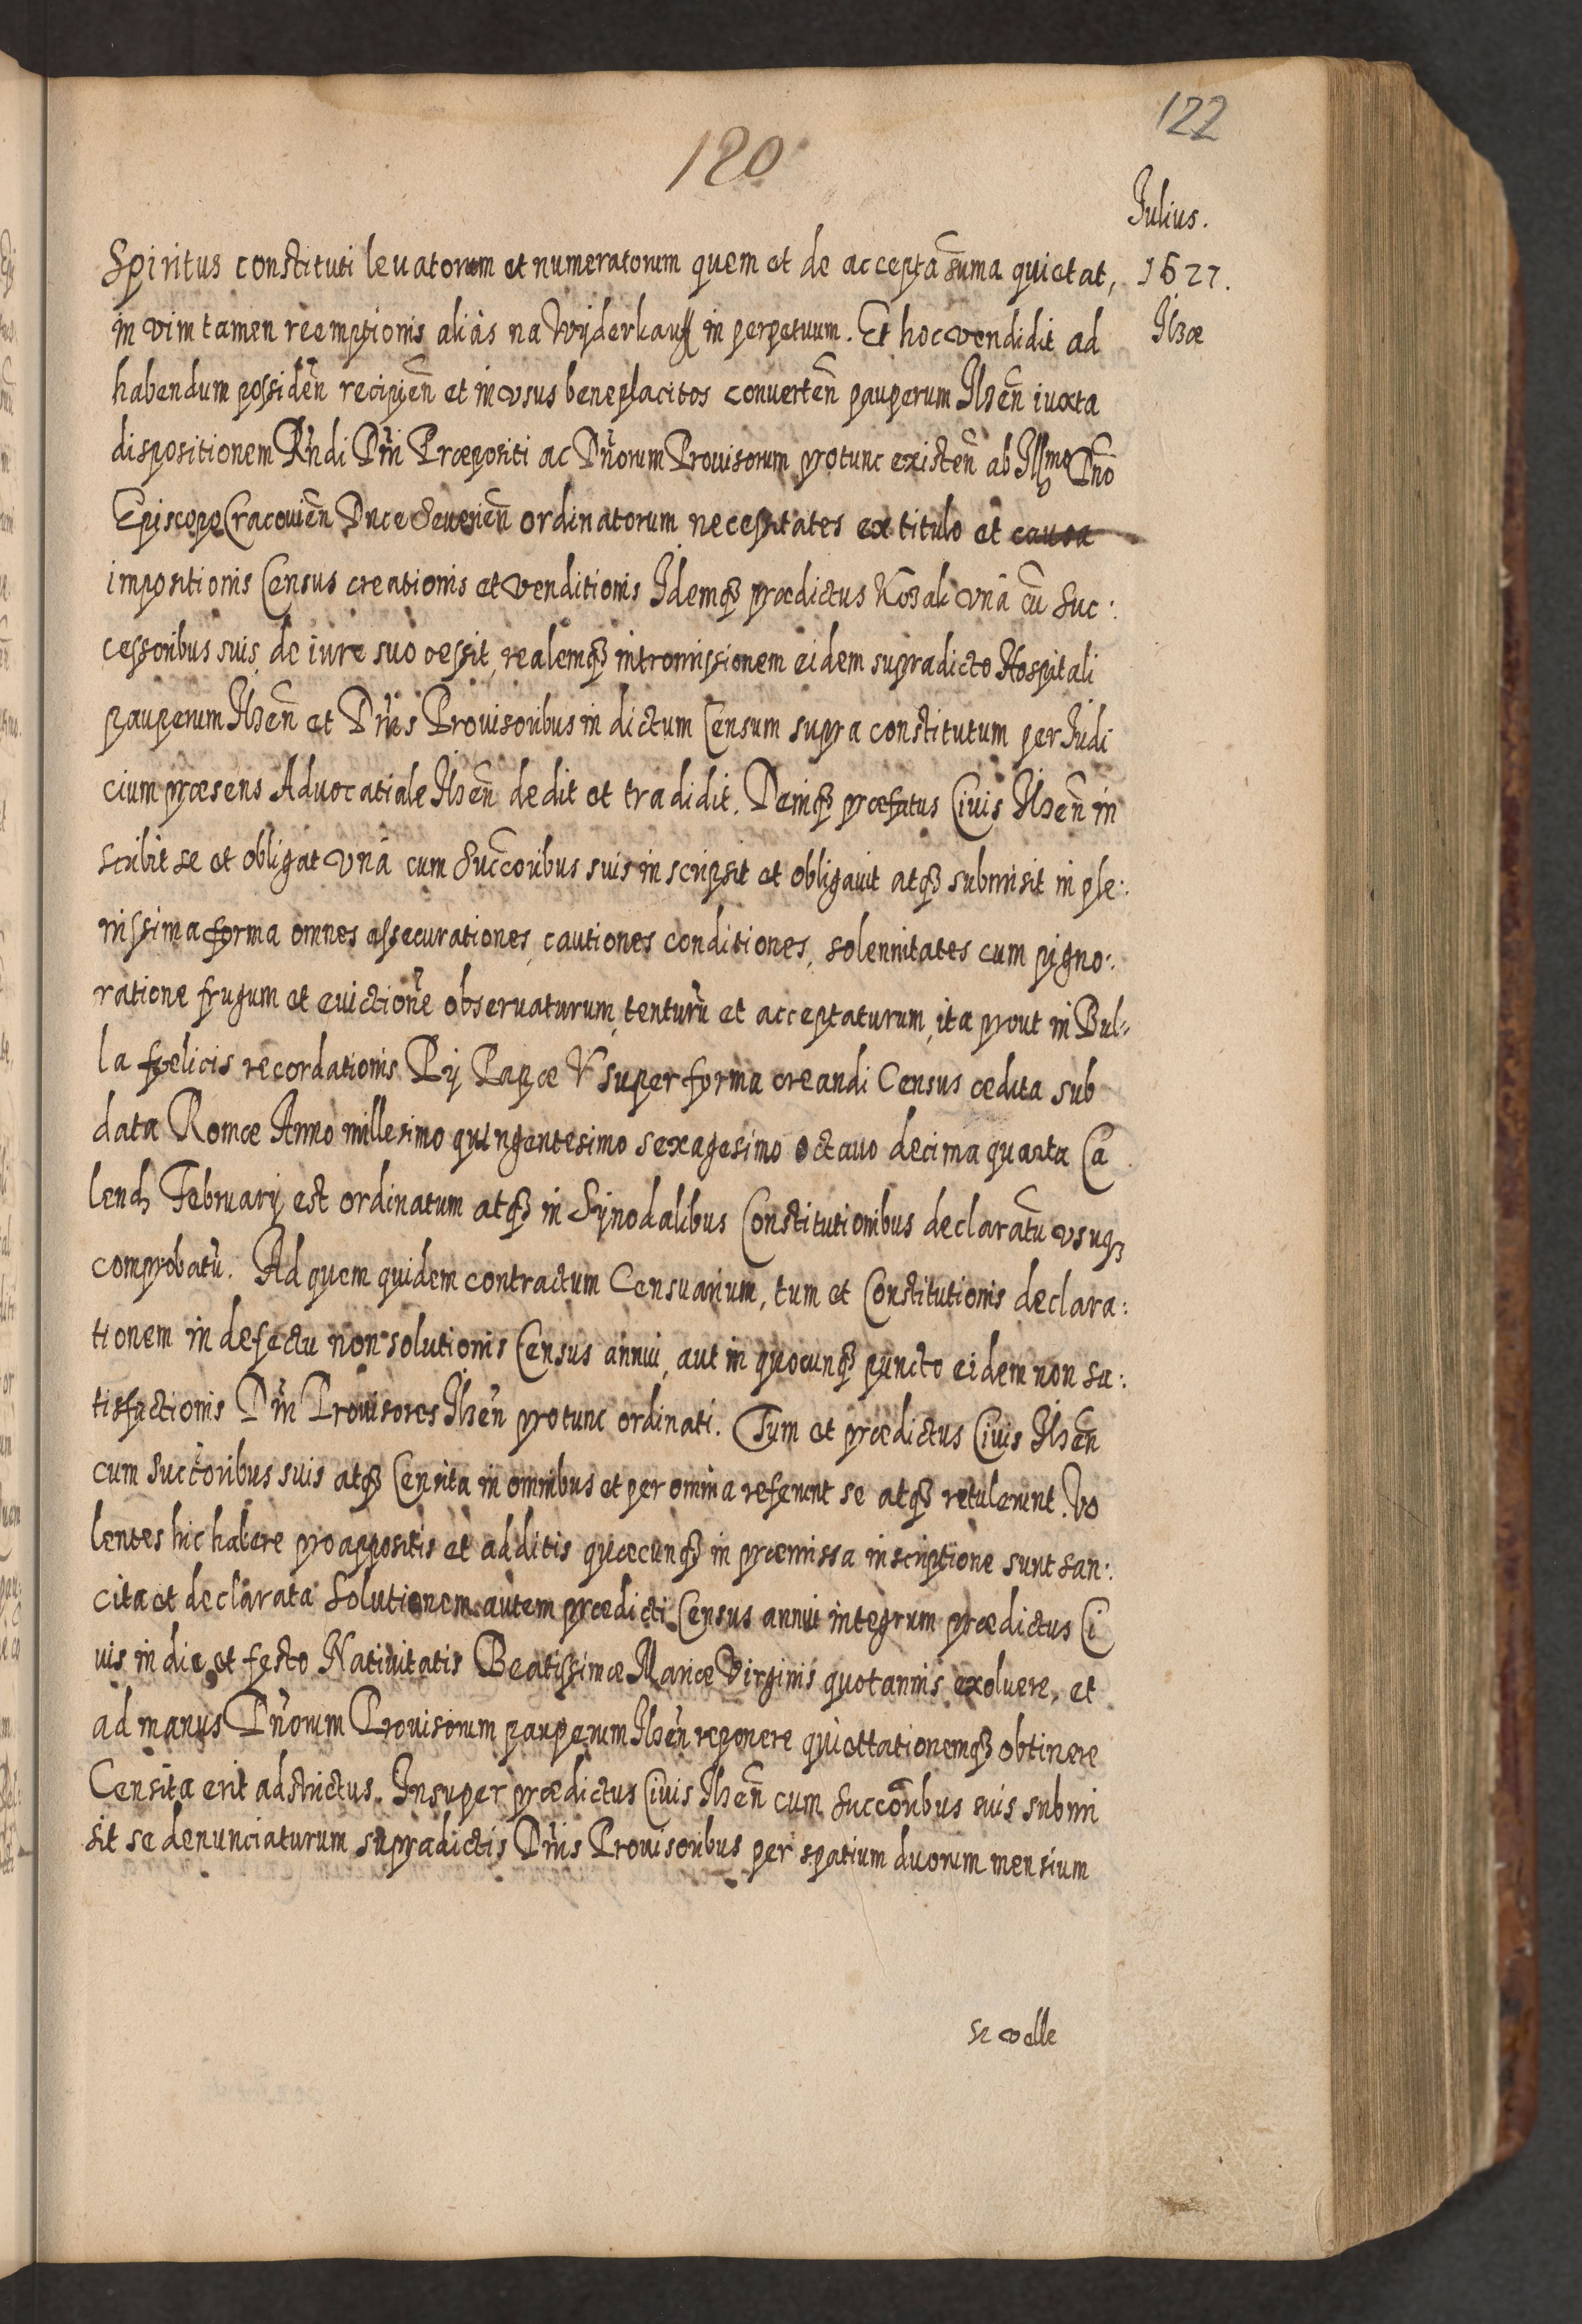 122
120
Julius.
1627.
Ilzæ
Spiritus constituti levatorum et numeratorum quem et de accepta suma quietat,
in vim tamen reemptionis aliàs na Wyderkauff in perpetuum. Et hoc vendidit ad
habendum possideñ recipieñ et in vsus beneplacitos converteñ pauperum Ilzeñ iuxta
dispositionem Rñdi Dñi Præpositi ac Dñorum Provisorum protunc existeñ ab Illmo Dño
Episcopo Cracovieñ Duce Severieñ ordinatorum necessitates ex titulo et causa
impositionis Census creationis et venditionis Idemq3 prædictus Kozak vnâ cũ Suc:
cessoribus suis, de iure suo cessit, realemq3 intromissionem eidem supradicto Hospitali
pauperum Ilzeñ et Dñis Provisoribus in dictum Censum supra constitutum per Iudi
cium præsens Advocatiale Ilzeñ dedit et tradidit. Deniq3 præfatus Civis Ilzeñ in
scribit se et obligat vnâ cum Succoribus suis inscripsit et obligavit atq3 submisit in ple:
nissima forma omnes assecurationes, cautiones conditiones, solennitates cum pigno:
ratione frugum et evictione observaturum, tenturũ et acceptaturum, ita prout in Bul=
la fœlicis recordationis Pij Papæ V super forma creandi Census ædita sub
data Romæ Anno millesimo quingentesimo sexagesimo octavo decima quarta Ca
lend Februarij est ordinatum atq3 in Synodalibus Constitutionibus declaratũ vsuq3
comprobatũ. Ad quem quidem contractum Censuarium, tum et Constitutionis declara:
tionem in defectu non solutionis Census annui, aut in quocunq3 puncto eidem non sa:
tisfactionis Dñi Provisores Ilzeñ protunc ordinati. Tum et prædictus Civis Ilzeñ
cum succoribus suis atq3 Censita in omnibus et per omnia referunt se atq3 retulerunt. Vo
lentes hic habere pro appositis et additis quæcunq3 in præmissa inscriptione sunt san:
cita et declarata Solutionem autem prædicti Census annui integrum prædictus Ci
vis in die et festo Nativitatis Beatissimæ Mariæ Virginis quotannis exoluere, et
ad manus Dñorum Provisorum pauperum Ilzeñ reponere quiettationemq3 obtinere
Censita erit adstrictus. Insuper prædictus Civis Ilzeñ cum Succoribus suis submi
sit se denunciaturum supradictis Dñis Provisoribus per spatium duorum mensium
se velle